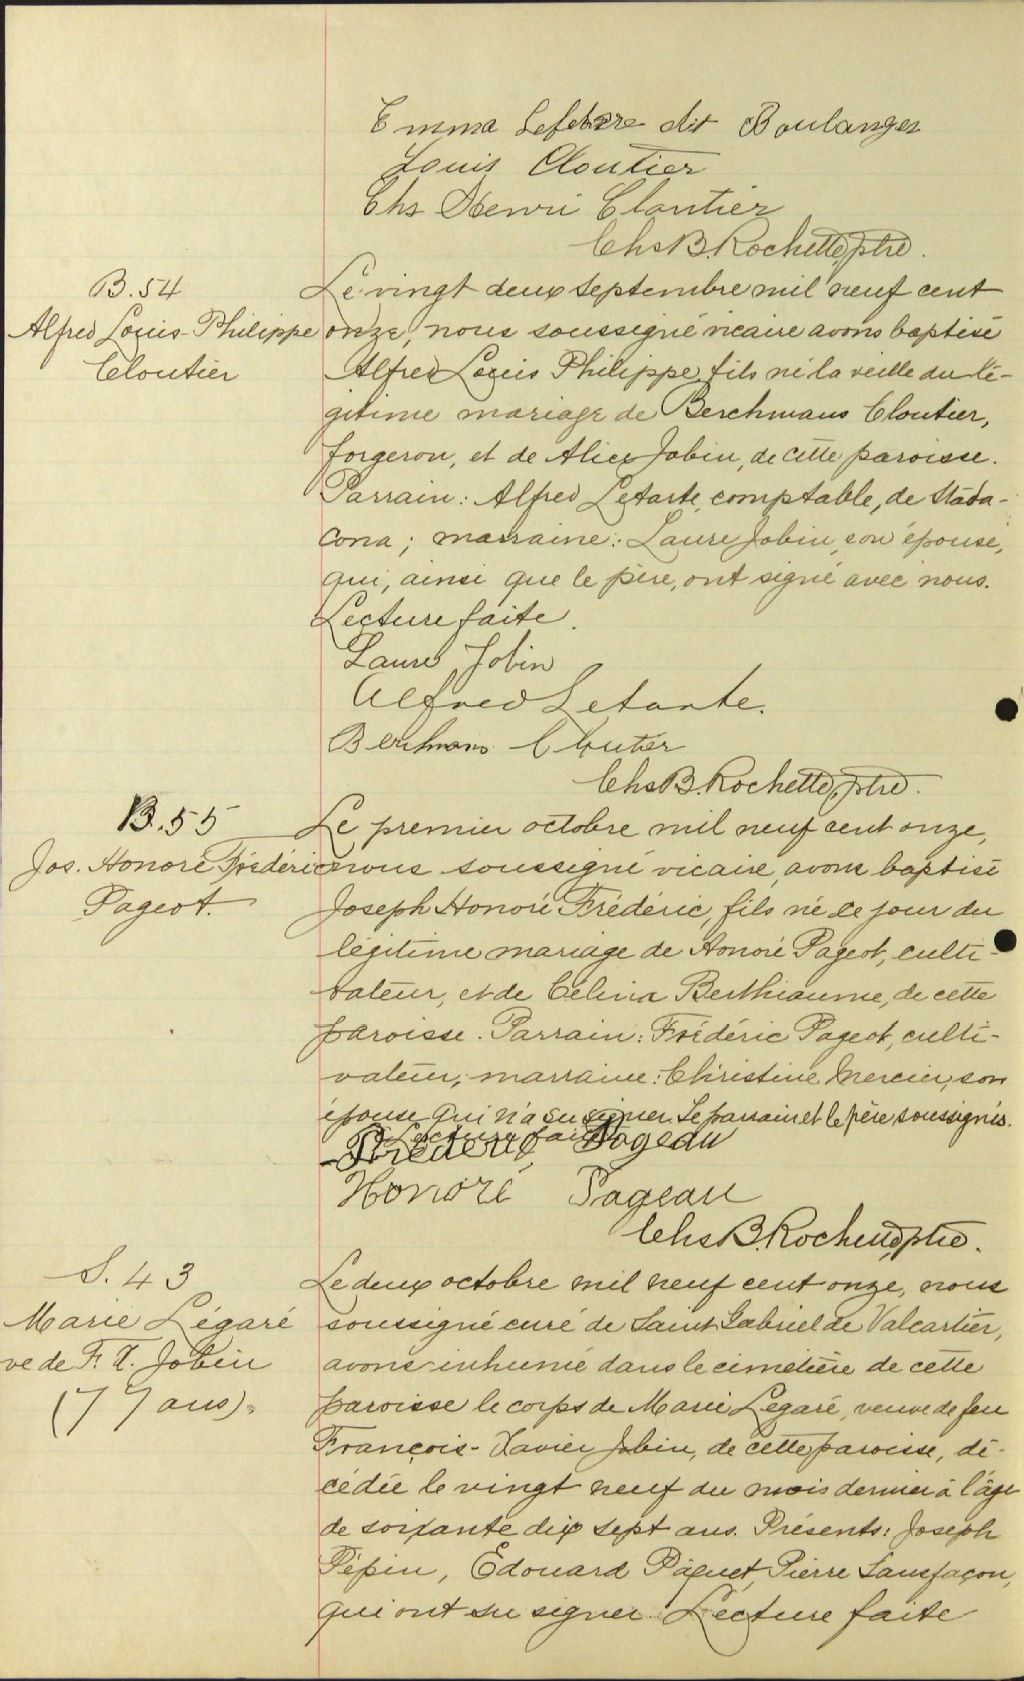 Emma Lefebvre dit Boulanger
Louis Cloutier
Chs Henri Cloutier
Chs B. Rochette, ptre.
B. 54
Alfred Louis-Philippe
Cloutier
Le vingt deux septembre mil neuf cent
onze, nous soussigné vicaire avons baptisé
Alfred Louis Philippe, fils né la veille du lé-
gitime mariage de Berchmans Cloutier,
forgeron, et de Alice Jobin, de cette paroisse.
Parrain: Alfred Letarte, comptable, de Stada-
cona; marraine: Laure Jobin, son épouse,
qui, ainsi que le père, ont signé avec nous.
Lecture faite.
Laure Jobin
Alfred Letarte.
Berchmans Cloutier
Chs B. Rochette, ptre.
B. 55
Jos. Honoré Frédéric
Pageot.
Le premier octobre mil neuf cent onze,
nous soussigné vicaire, avons baptisé
Joseph Honoré Frédéric, fils né ce jour du
légitime mariage de Honoré Pageot, culti-
vateur, et de Célina Berthiaume, de cette
paroisse. Parrain: Frédéric Pageot, culti-
vateur; marraine: Christine Mercier, son
épouse qui n'a su signer. Le parrain et le père soussignés.
Lecture faite
Frederic Pageau
Honoré Pageau
Chs B. Rochette, ptre.
S. 43
Marie Légaré
ve de F. X. Jobin
(77 ans).
Le deux octobre mil neuf cent onze, nous
soussigné curé de Saint Gabriel de Valcartier,
avons inhumé dans le cimetière de cette
paroisse le corps de Marie Légaré, veuve de feu
François-Xavier Jobin, de cette paroisse, dé-
cédée le vingt neuf du mois dernier à l'âge
de soixante dix sept ans. Présents: Joseph
Pépin, Edouard Paquet, Pierre Sansfaçon,
qui ont su signer. Lecture faite